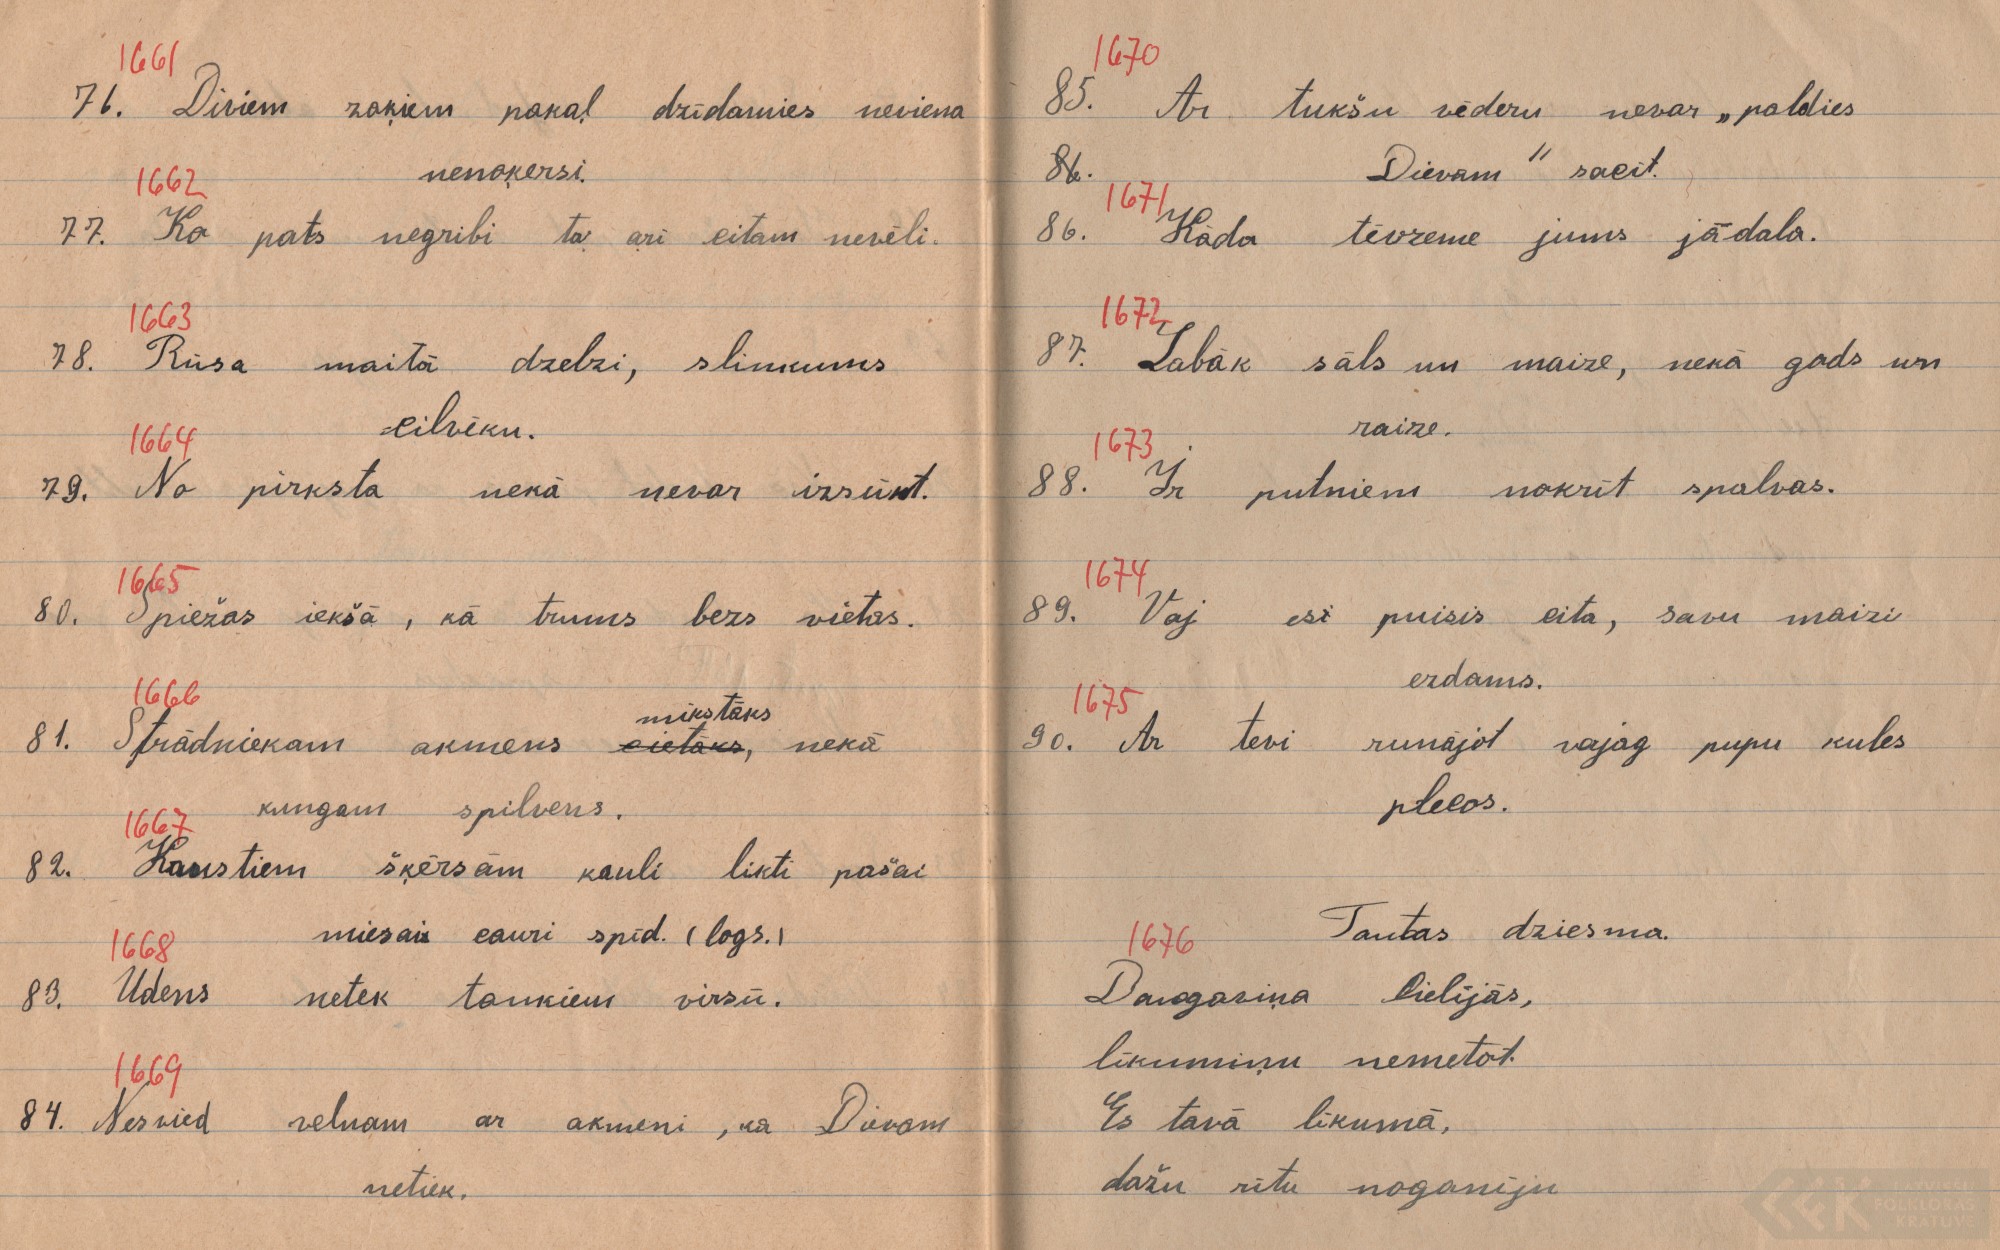 1661
76. Diviem zaķiem pakaļ dzīdamies neviena
nenoķersi.
1662
77. Ko pats negribi to arī citam nevēli.
1663
78. Rūsa maitā dzelzi, slinkums
cilvēku.
1664
79. No pirksta nekā nevar izsūkt.
1665
80. Spiežas iekšā, kā trums bezs vietas.
1666
mīkstāks
81. Strādniekam akmens cietāks, nekā
kungam spilvens.
1667
82. Kaustiem šķērsām kauli likti pašai
miesai cauri spīd. (logs.)
1668
83. Udens netek taukiem virsū.
1669
84. Nesvied velnam ar akmeni, ka Dievam
netiek.
1670
85. Ar tukšu vēderu nevar „paldies
86. Dievam" sacīt.
1671
86. Kāda tēvzeme jums jādala.
1672
87. Labāk sāls un maize, nekā gods un
raize.
1673
88. Ir putniem nokrīt spalvas.
1674
89. Vaj esi puisis cita, savu maizi
ezdams.
1675
90. Ar tevi runājot vajag pupu kules
plecos.
Tautas dziesma.
1676
Daugaviņa lielījās,
līkumiņu nemetot.
Es tavā līkumā,
dažu rītu noganīju
LATVIEŠU
FOLKLORAS
KRĀTUVE